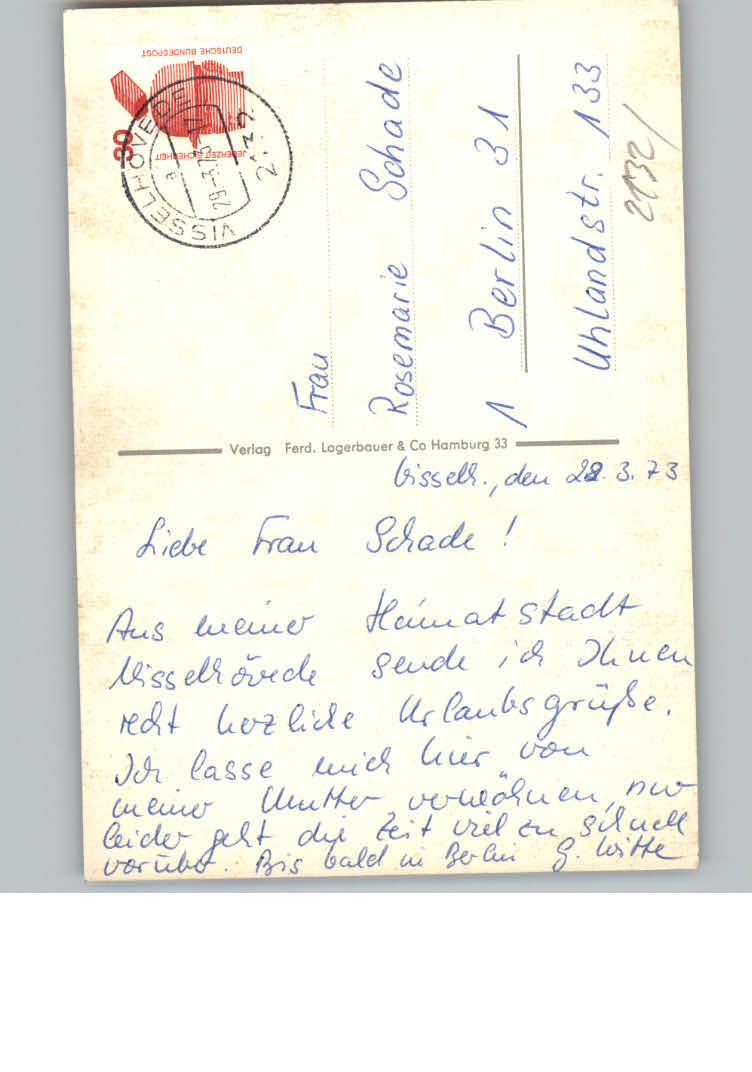 DEUTSCHE BUNDESPOST
JEDERZEIT SICHERHEIT
30
VISSELHÖVEDE
a
29.-3.73
2132
Frau
Rosemarie Schade
1 Berlin 31
Uhlandstr. 133
2132/
Verlag Ferd. Lagerbauer & Co Hamburg 33
Visselh., den 28. 3. 73
Liebe Frau Schade!
Aus meiner Heimatstadt
Visselhövede sende ich Ihnen
recht herzliche Urlaubsgrüße.
Ich lasse mich hier von
meiner Mutter verwöhnen, nur
leider geht die Zeit viel zu schnell
vorüber. Bis bald in Berlin G. Witte